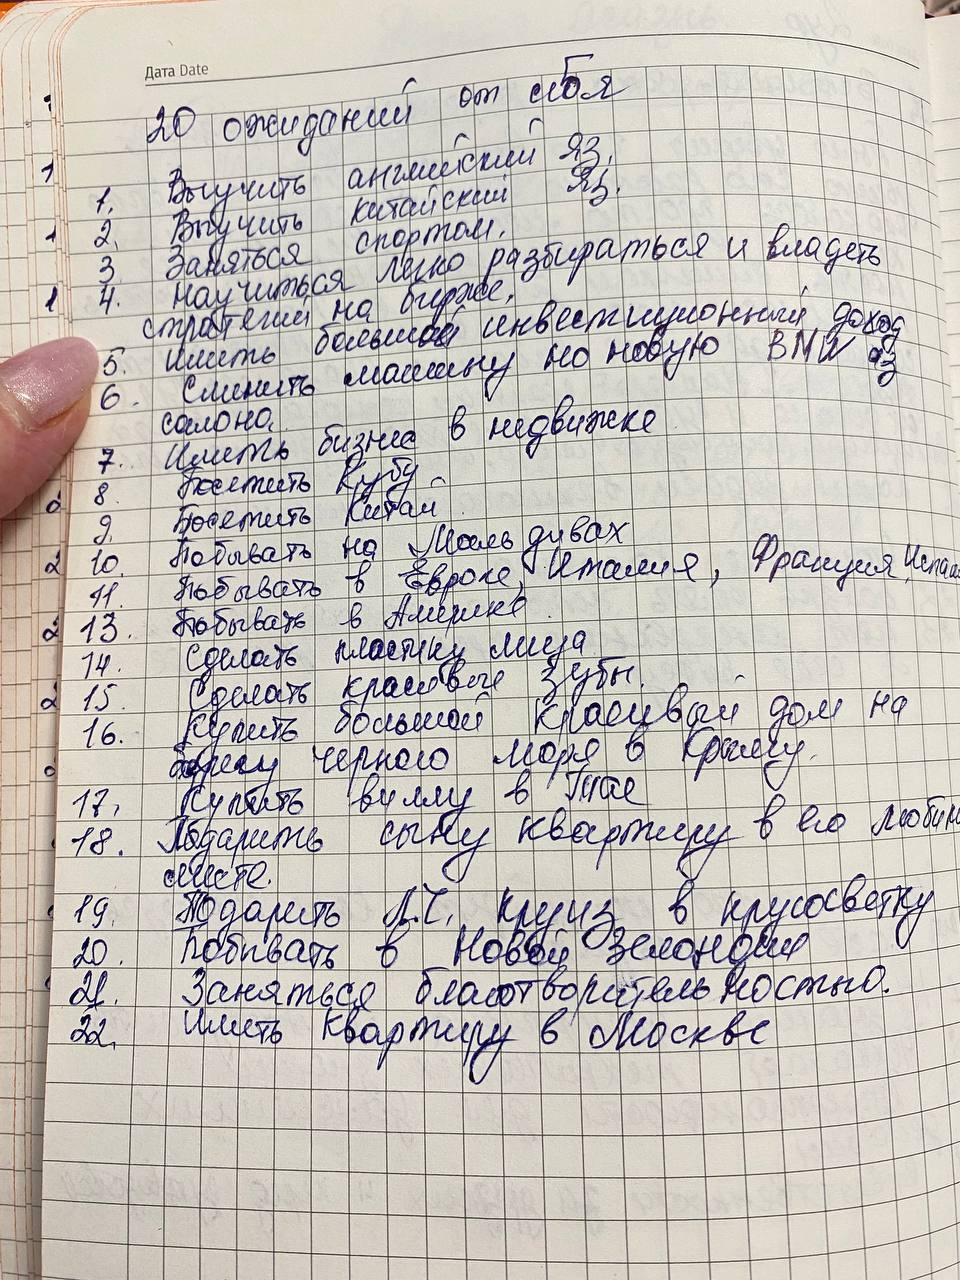 Дата Date
20 ожиданий от себя
1. Выучить английский яз.
2. Выучить китайский яз.
3 Заняться спортом.
4. Научиться легко разбираться и владеть
стратегий на бирже.
5. Иметь большой инвестиционный доход
6. Сменить машину на новую BMW из
салона.
7. Иметь бизнес в недвижке
8. Посетить Кубу
9. Посетить Китай
10. Побывать на Мальдивах
11. Побывать в Европе, Италия, Франция, Испан
13. Побывать в Америке
14. Сделать пластику лица
15. Сделать красивые зубы.
16. Купить большой красивый дом на
берегу черного моря в Крыму.
17. Купить виллу в Тае
18. Подарить сыну квартиру в его любим
месте.
19. Подарить Л.Г. круиз в кругосветку
20. Побывать в Новой Зеландии
21. Заняться благотворительностью.
22. Иметь квартиру в Москве